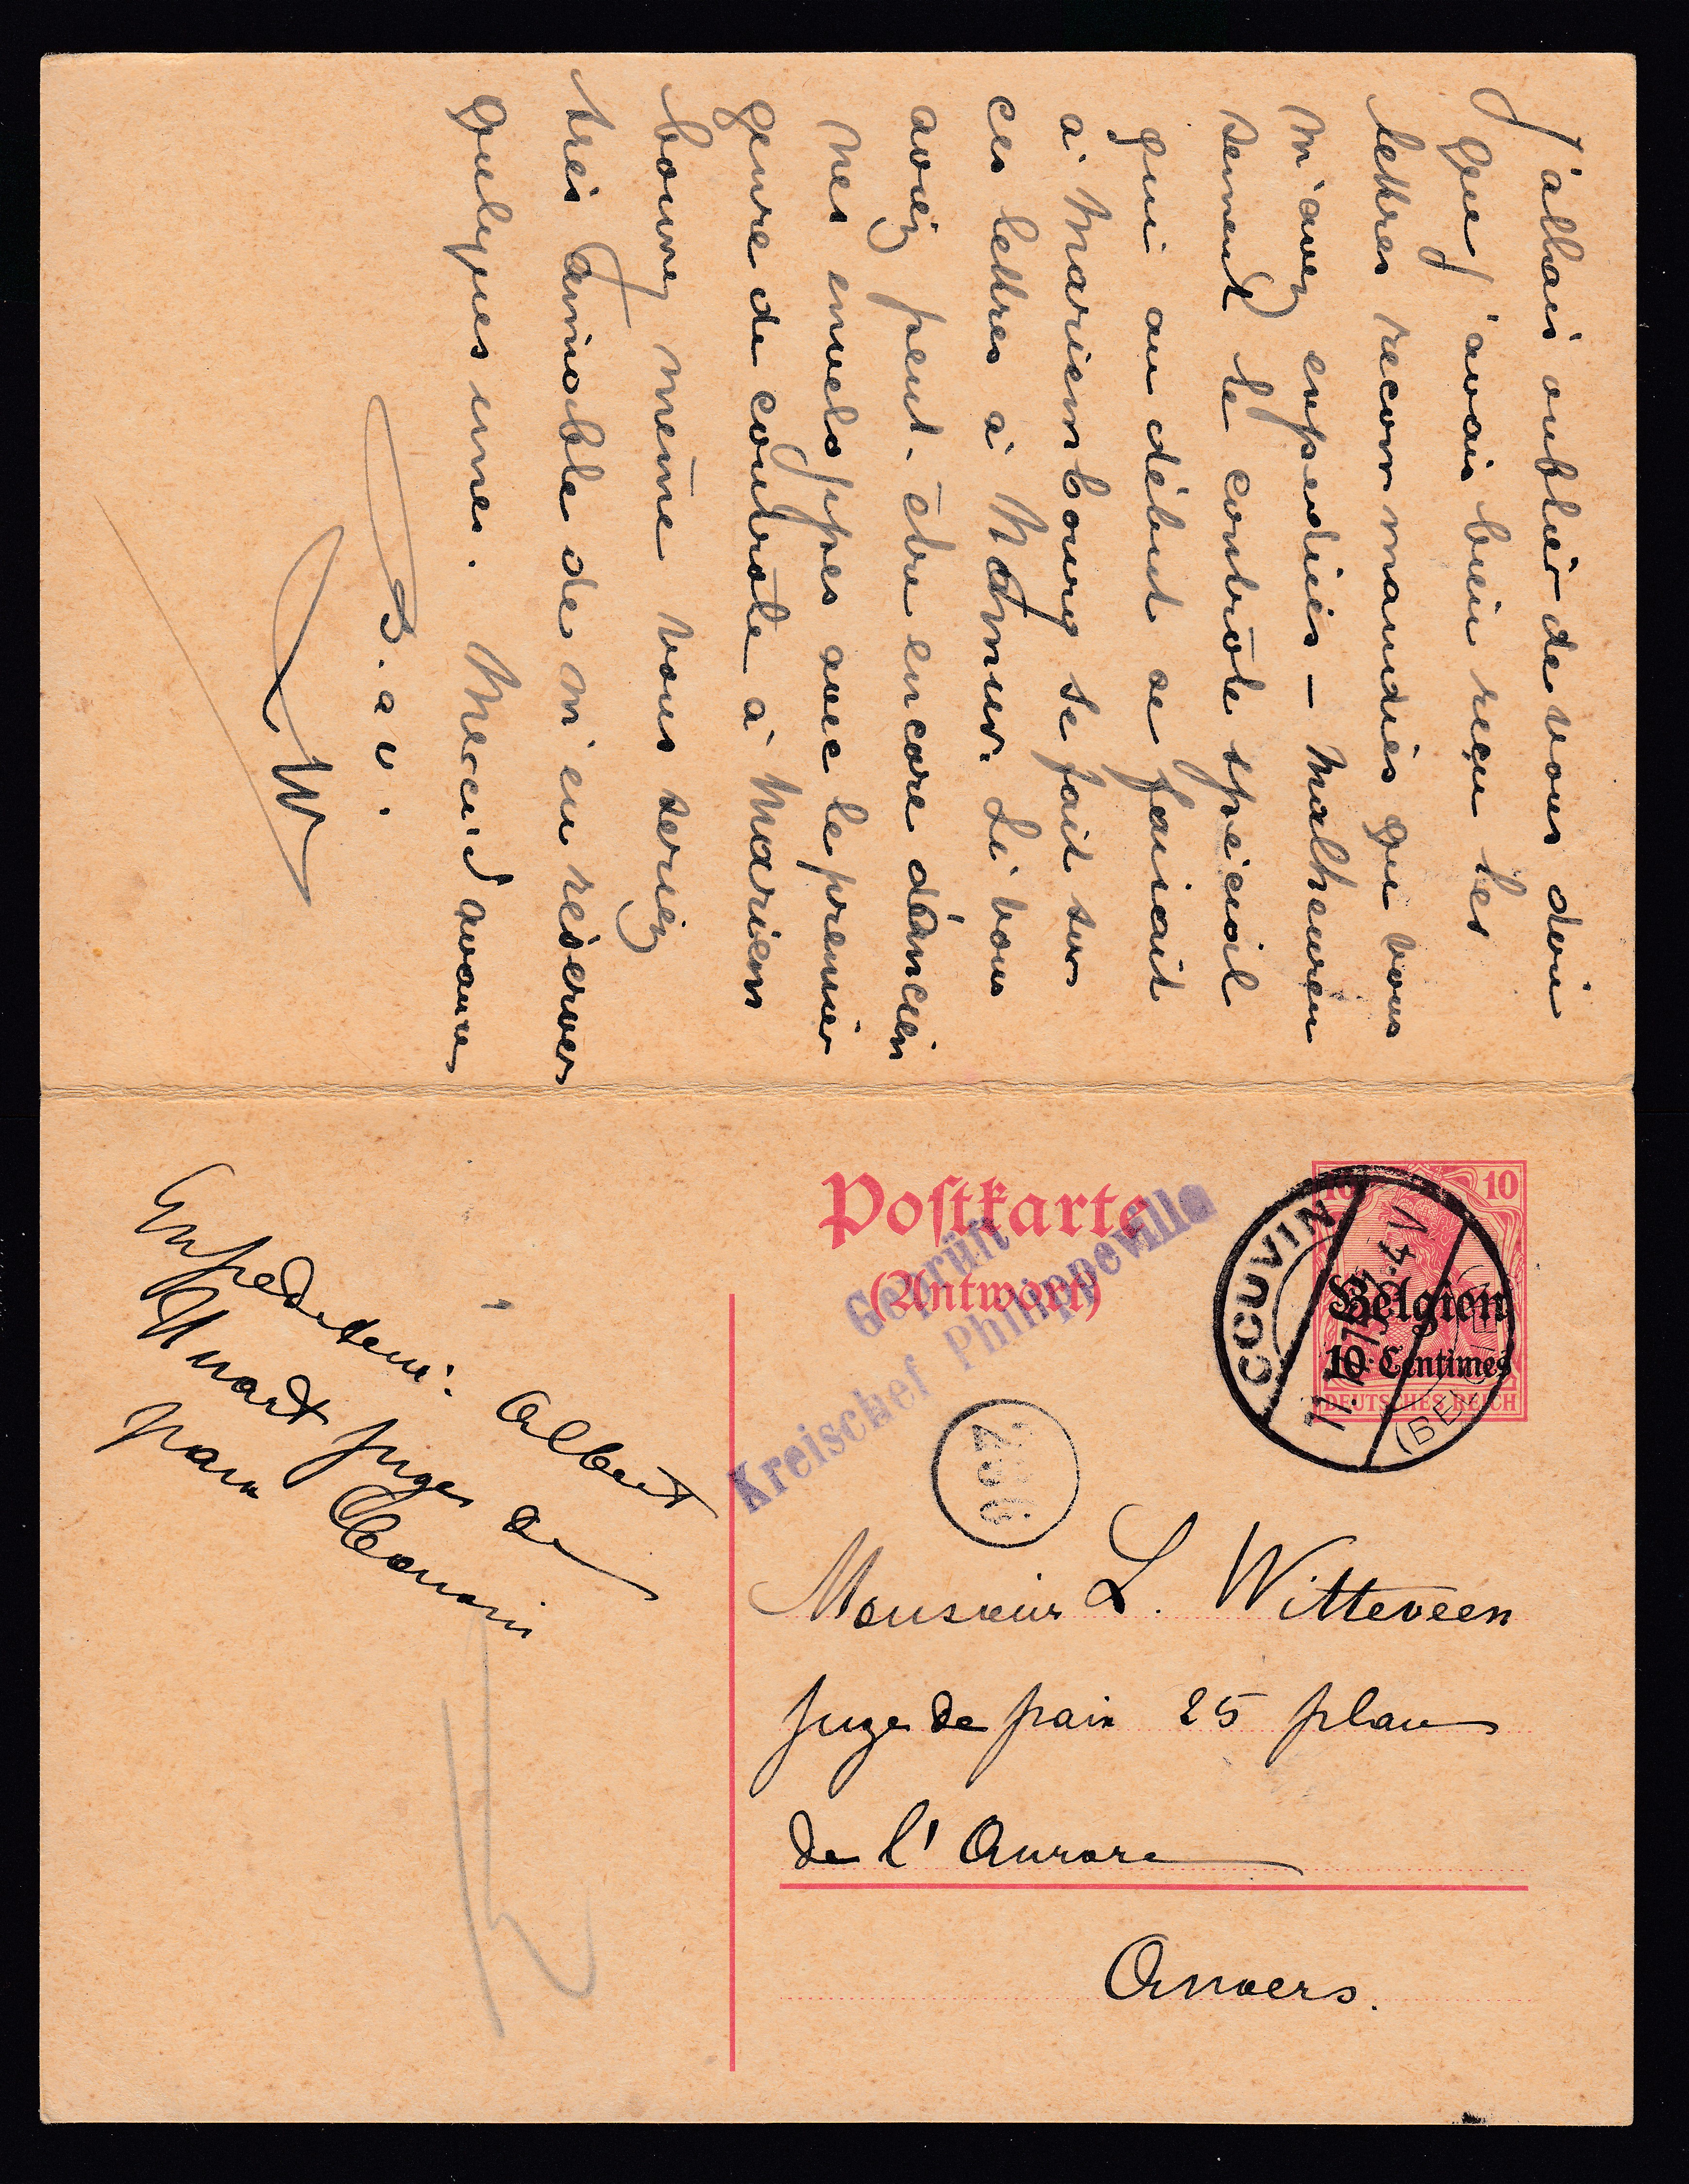 J'allais oublier de vous dire
que j'avais bien reçu les
lettres recommandées que vous
m'avez expediées — Malheureu
sement le contrôle spécial
qui au début se faisait
à Mariembourg se fait sur
ces lettres à Namur. Si vous
aviez peut-être encore d'ancien
nes enveloppes avec le premier
genre de contrôle à Mariem
bourg même vous seriez
très aimable de m'en réserver
quelques unes. Merci d'avance
B. a v.
LW
Postkarte
(Antwort)
Geprüft
Kreischef Philippeville
10 10
Belgien
10 Centimes
DEUTSCHES REICH
COUVIN
(BELGIEN)
Expediteur: Albert
Huart juge de
paix Couvin
Monsieur L. Witteveen
juge de paix 25 place
de l'Aurore
Anvers.